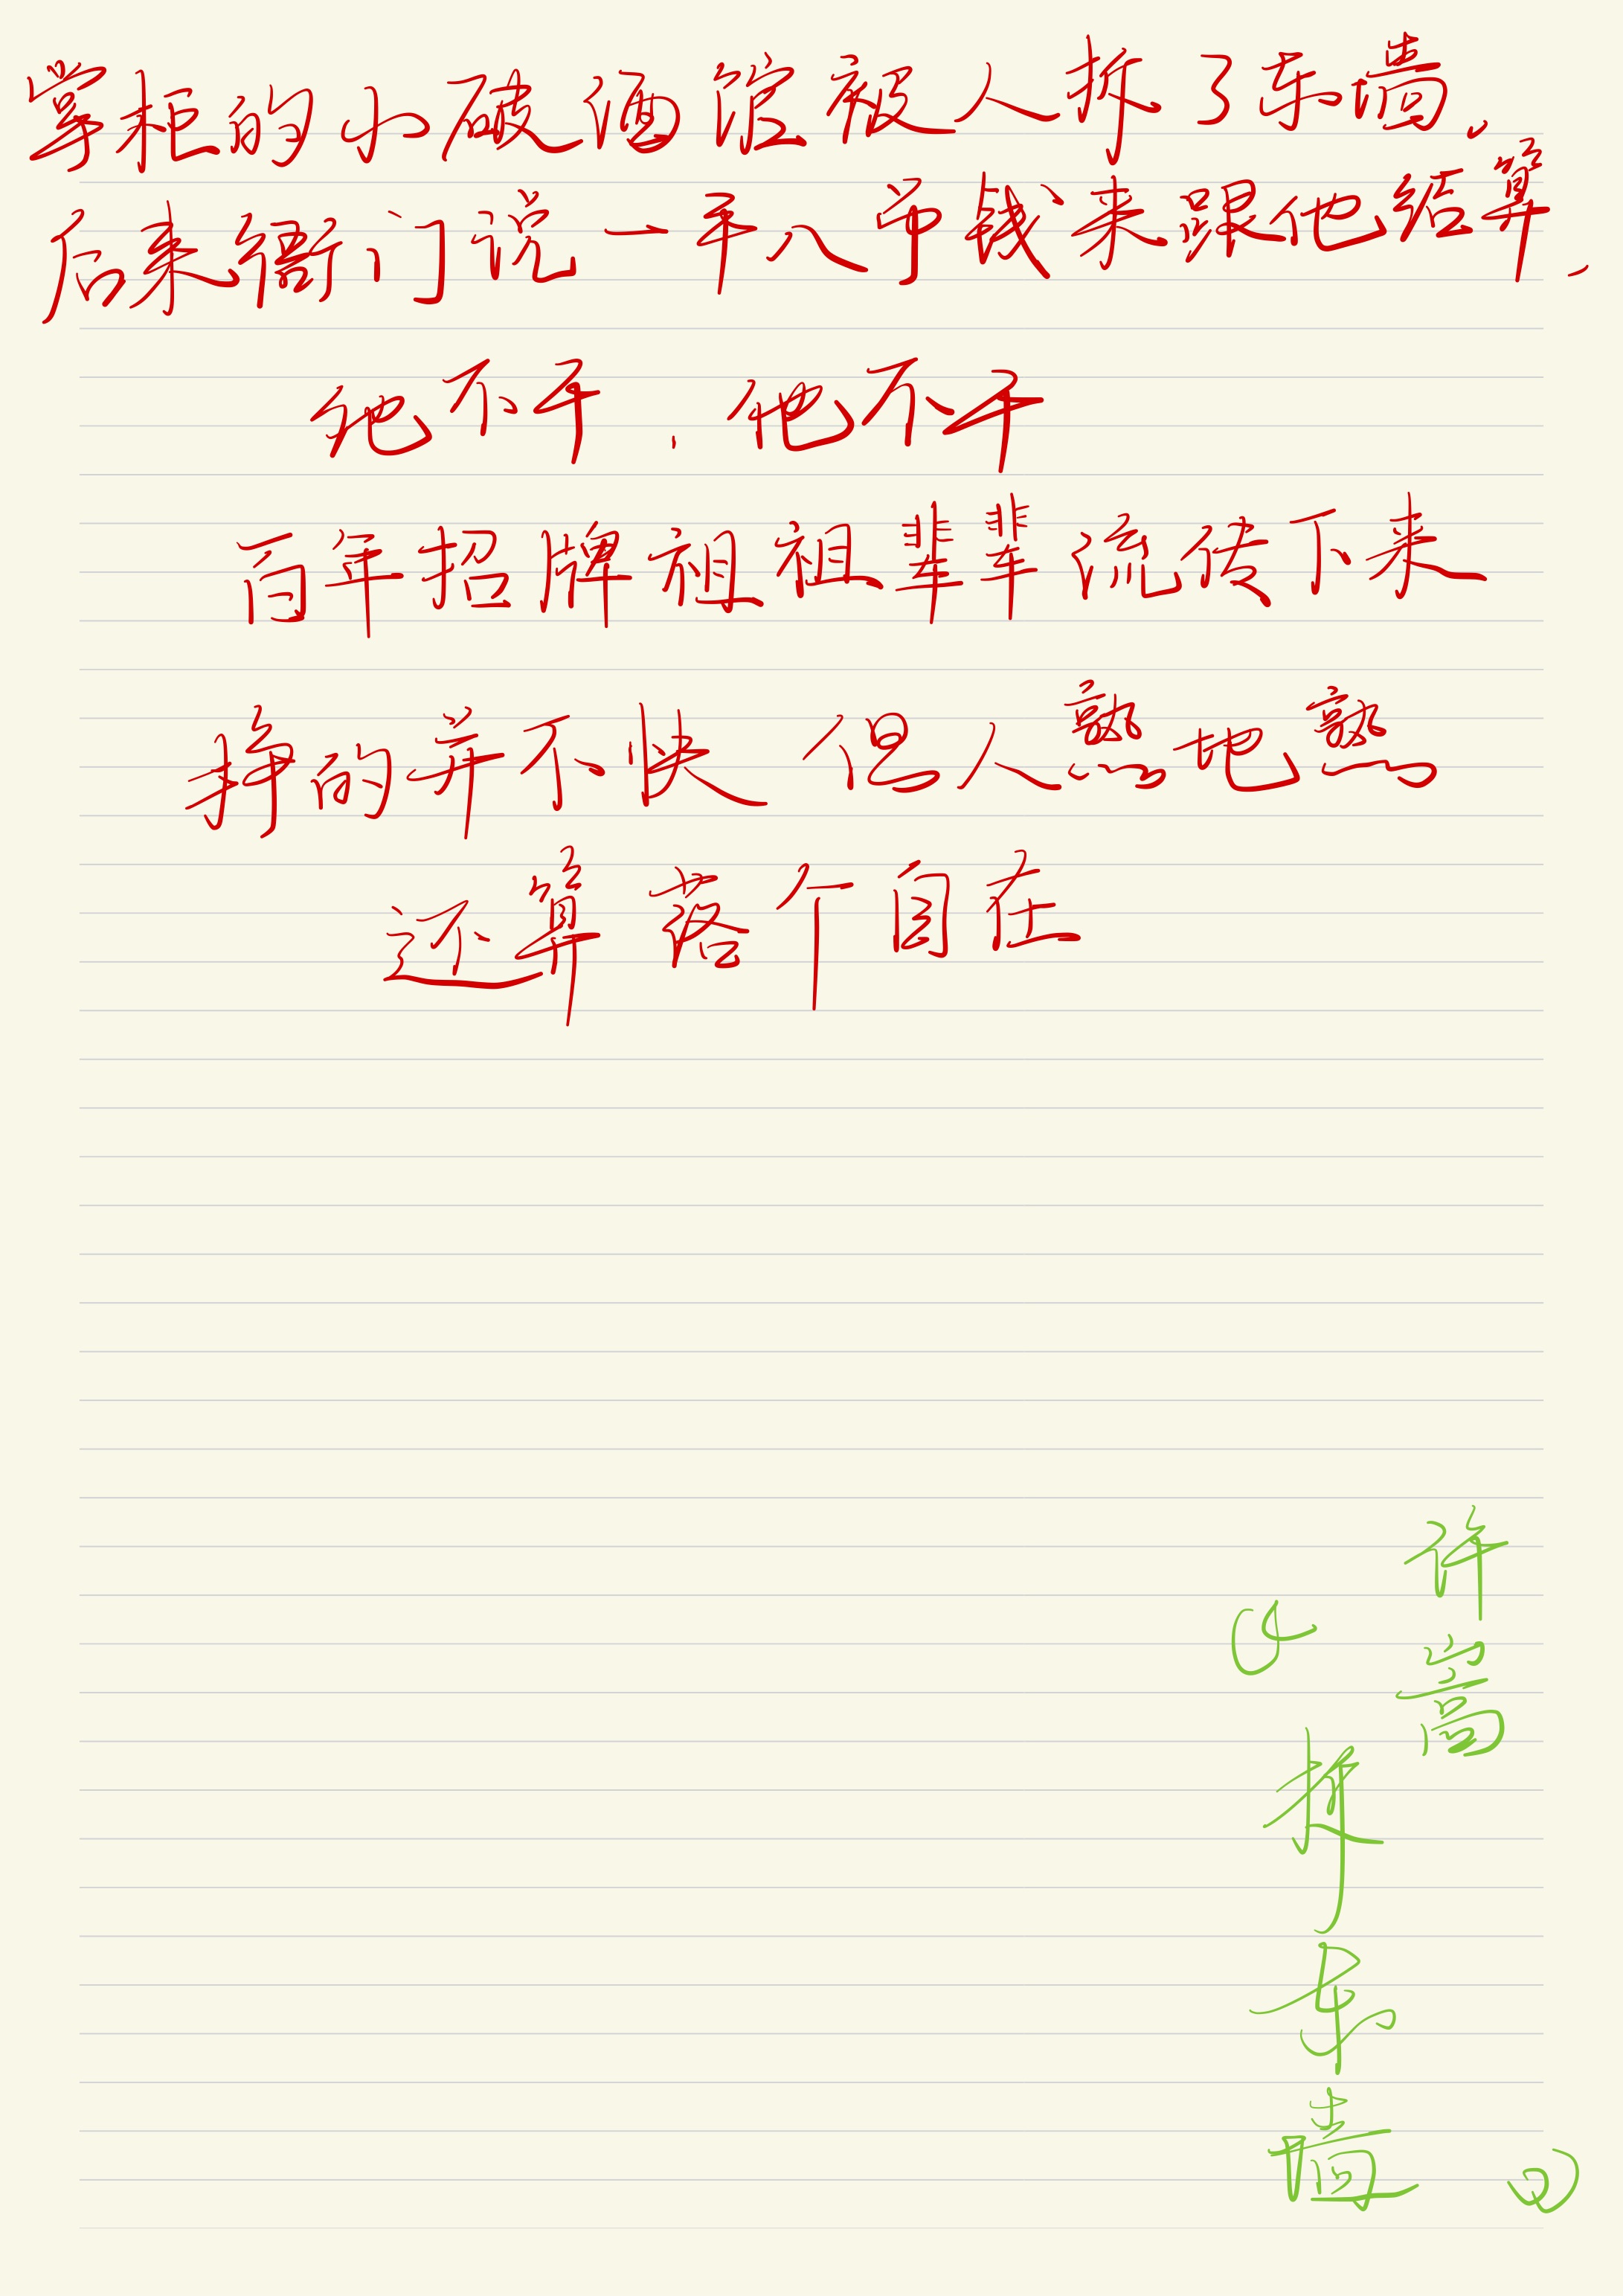 掌柜的小破酒馆被人拆了东墙，
后来衙门说一平八吊钱来跟他结算，
他不干，他不干
百年招牌祖祖辈辈流传下来
挣的并不快 但人熟地熟
还算落个自在
许嵩
《拆东墙》